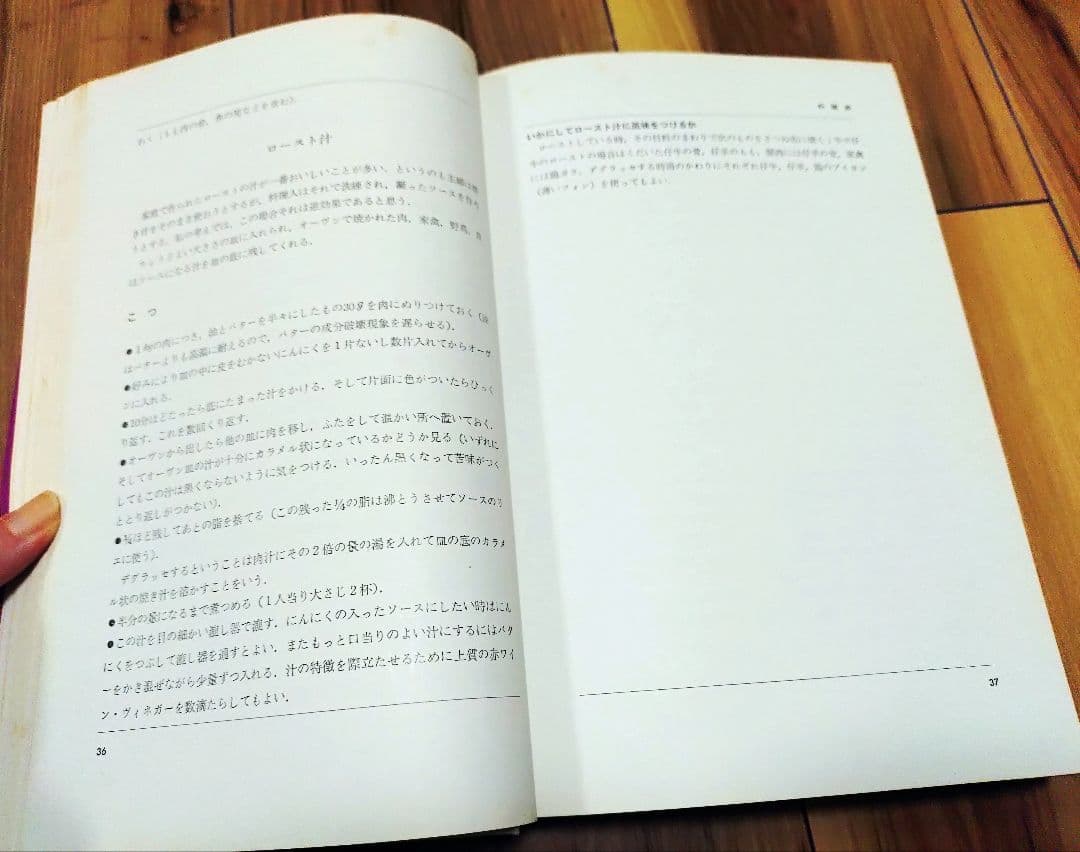 おく（もも肉の骨，
ロースト汁
家庭で作られたローストの汁が一番おいしいことが多い．というのも主婦は焼
き汁をそのまま使おうとするが，料理人はそれで洗練され，凝ったソースを作ろ
うとする．私の考えでは，この場合それは逆効果であると思う．
ちょうどよい大きさの皿に入れられ，オーヴンで焼かれた肉，家禽，野鳥，
はソースになる汁を皿の底に残してくれる．
こつ
●1kgの肉につき，油とバターを半々にしたもの30gを肉にぬりつけておく（油
はバターよりも高温に耐えるので，バターの成分破壊現象を遅らせる）．
●好みにより皿の中に皮をむかないにんにくを1片ないし数片入れてからオーヴ
ンに入れる．
●20分ほどたったら底にたまった汁をかける．そして片面に色がついたらひっく
り返す．これを数回くり返す．
●オーヴンから出したら他の皿に肉を移し，ふたをして温かい所へ置いておく．
そしてオーヴン皿の汁が十分にカラメル状になっているかどうか見る（いずれに
してもこの汁は黒くならないように気をつける．いったん黒くなって苦味がつく
ととり返しがつかない）．
●¼ほど残してあとの脂を捨てる（この残った¼の脂は沸とうさせてソースのリ
エに使う）．
デグラッセするということは肉汁にその2倍の量の湯を入れて皿の底のカラメ
ル状の焼き汁を溶かすことをいう．
●半分の量になるまで煮つめる（1人当り大さじ2杯）．
●この汁を目の細かい漉し器で漉す．にんにくの入ったソースにしたい時はにん
にくをつぶして漉し器を通すとよい．またもっと口当りのよい汁にするにはバタ
ーをかき混ぜながら少量ずつ入れる．汁の特徴を際立たせるために上質の赤ワイ
ン・ヴィネガーを数滴たらしてもよい．
36
いかにしてロースト汁に風味をつけるか
ローストしている時，その材料のまわりで
牛のローストの場合はくだいた仔牛の骨，仔羊のもも，鞍肉には仔羊の骨，家禽
には鶏ガラ，デグラッセする時湯のかわりにそれぞれ仔牛，仔羊，鶏のブイヨン
（薄いフォン）を使ってもよい．
37